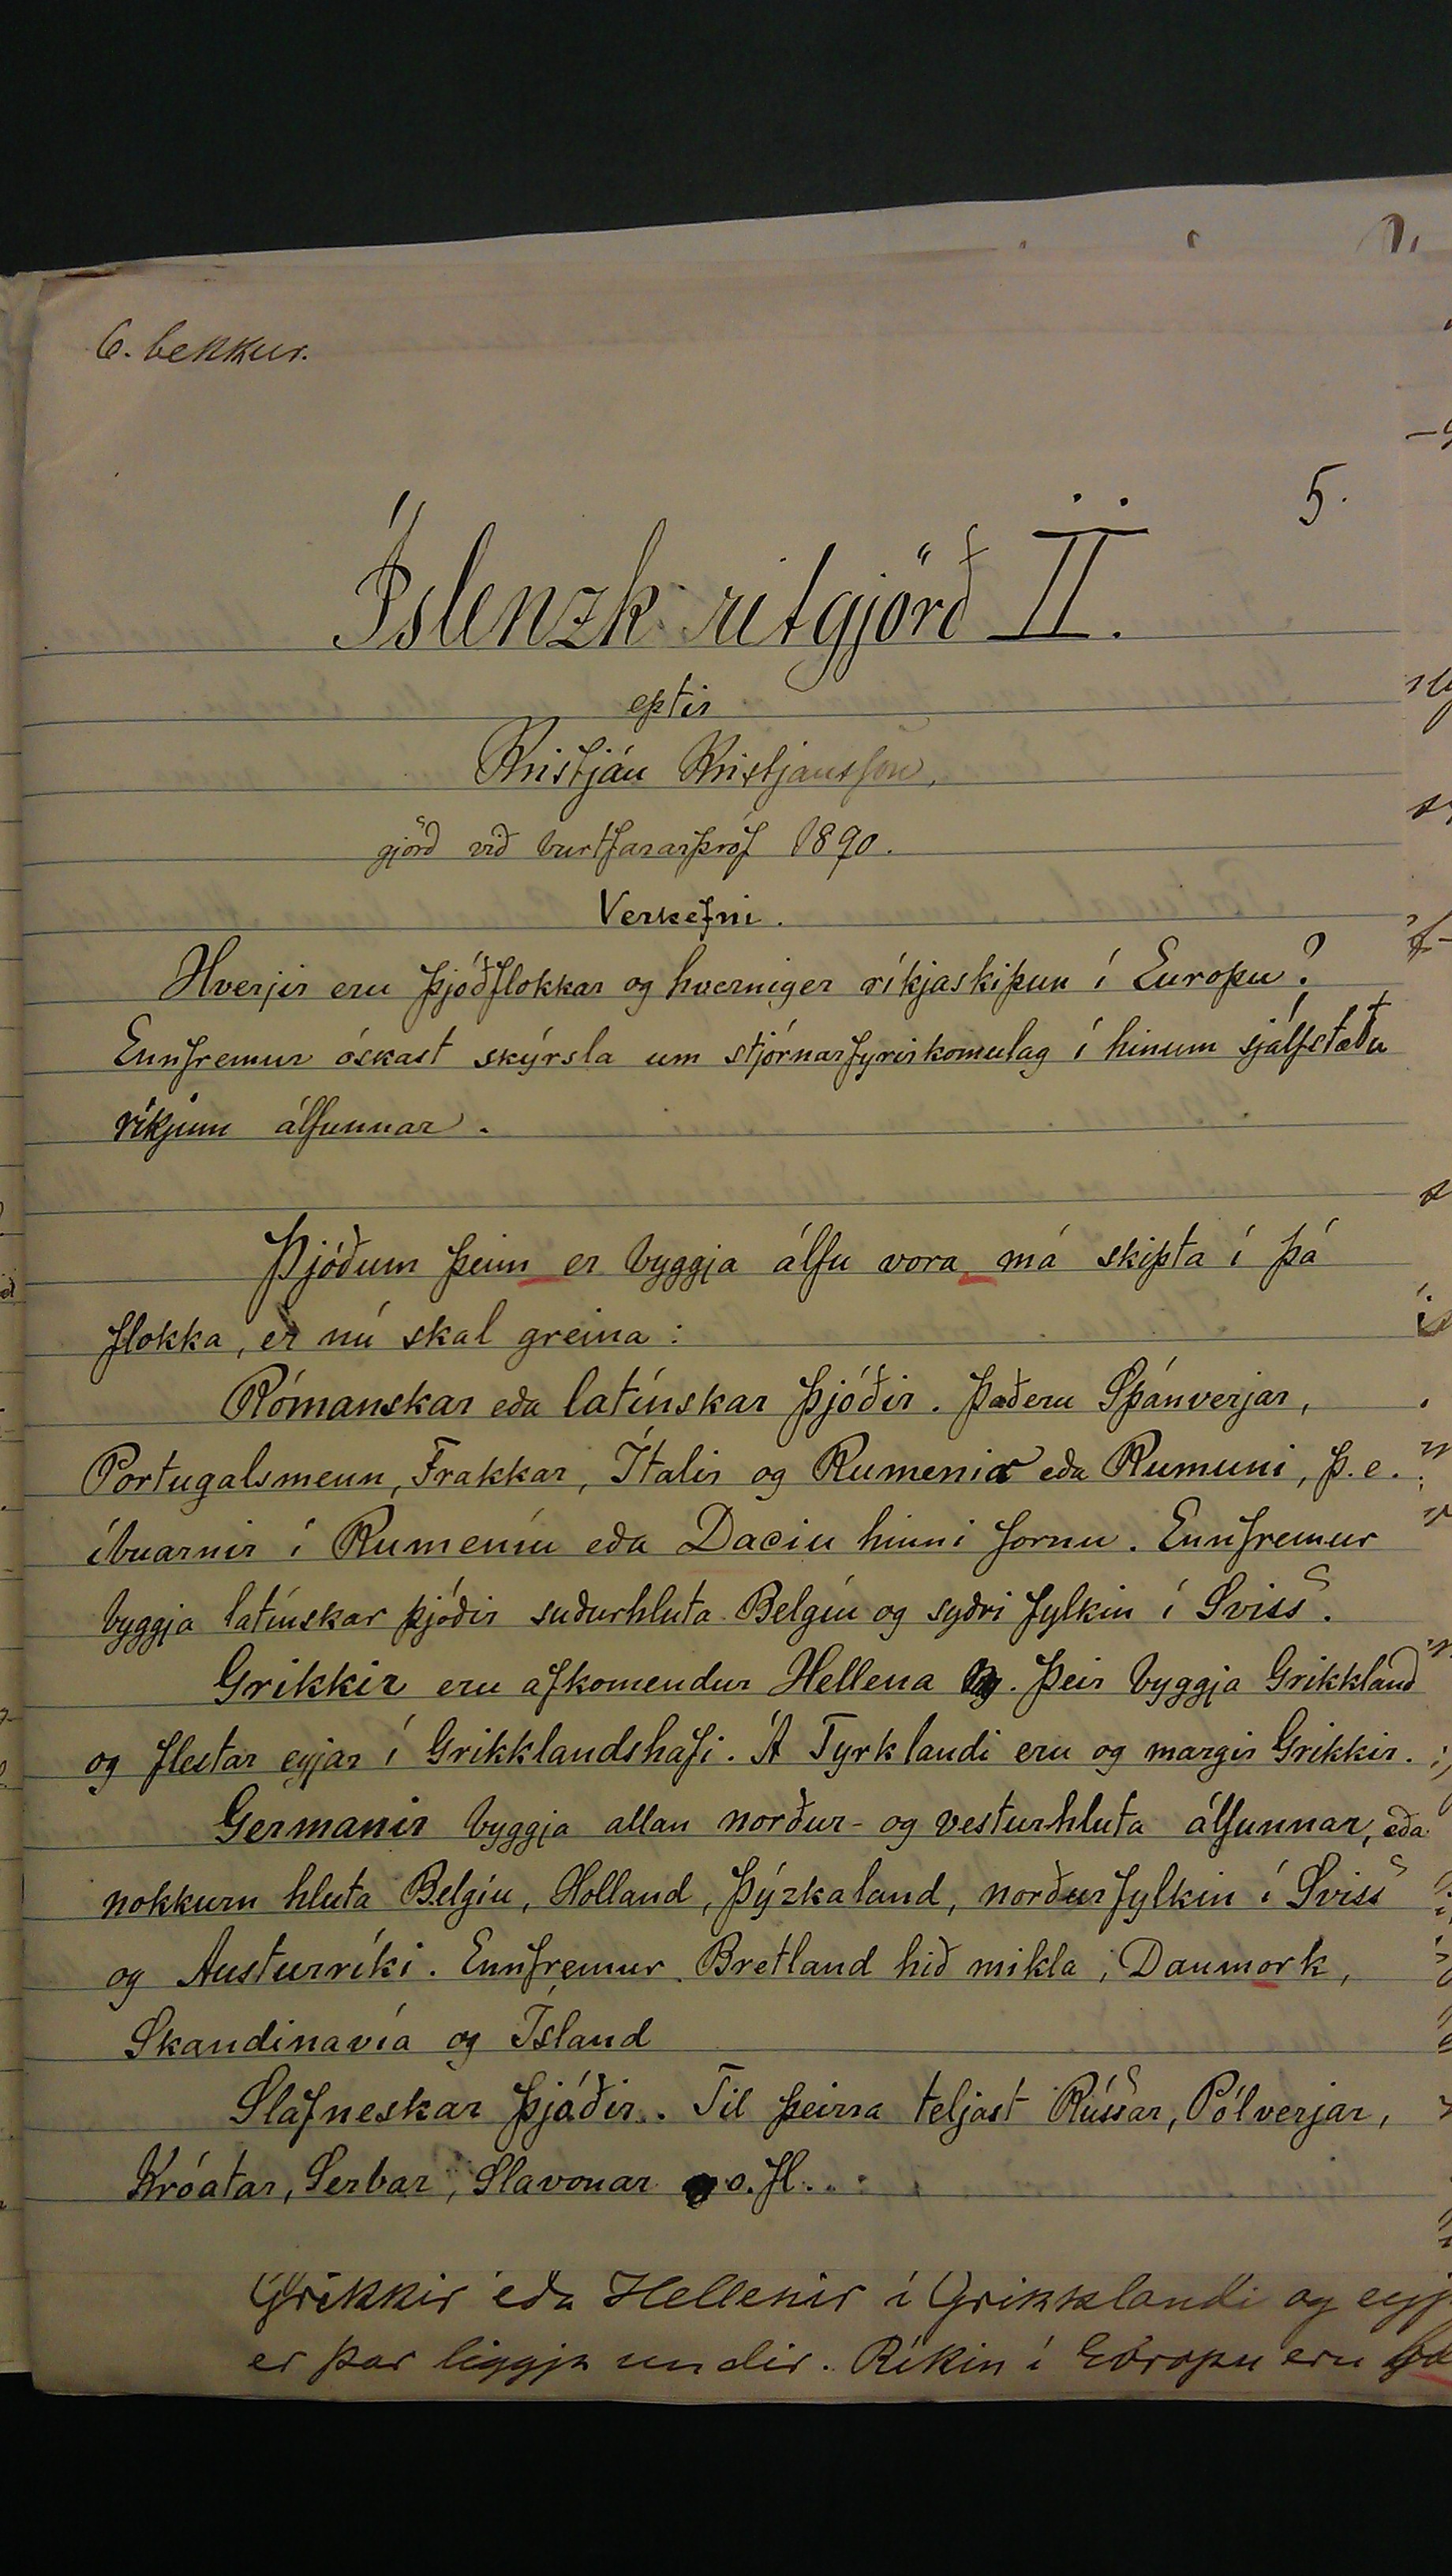 6. bekkur.
5.
Íslenzk ritgjörð II.
eptir
Kristján Kristjansson,
gjörð við burtfararpróf 1890.
Verkefni.
Hverjir eru þjóðflokkar og hverniger ríkjaskipun í Europu?
Ennfremur óskast skýrsla um stjórnarfyrirkomulag í hinum sjálfstæðu
ríkjum álfunnar.
Þjóðum þeim er byggja álfu vora, má skipta í þá
flokka, er nú skal greina:
Rómanskar eða latínskar þjóðir. Það eru Spánverjar,
Portugalsmenn, Frakkar, Ítalir og Rumenia eða Rumuni, þ.e.
íbuarnir í Rumeníu eða Daciu hinni fornu. Ennfremur
byggja latínskar þjóðir suðurhluta Belgíu og syðri fylkin í Sviss.
Grikkir eru afkomendur Hellena. Þeir byggja Grikkland
og flestar eyjar í Grikklandshafi. Á Tyrklandi eru og margir Grikkir.
Germanir byggja allan norður- og vesturhluta álfunnar, eða
nokkurn hluta Belgíu, Holland, Þýzkaland, norðurfylkin í Sviss
og Austurríki. Ennfremur Bretland hið mikla, Danmork,
Skandinavía og Ísland
Slafneskar þjóðir. Til þeirra teljast Rússar, Pólverjar,
Króatar, Serbar, Slavonar o. fl.
Grikkir eða Hellenir í Grikklandi og eyj
er þar liggja undir. Ríkin í Evropu eru